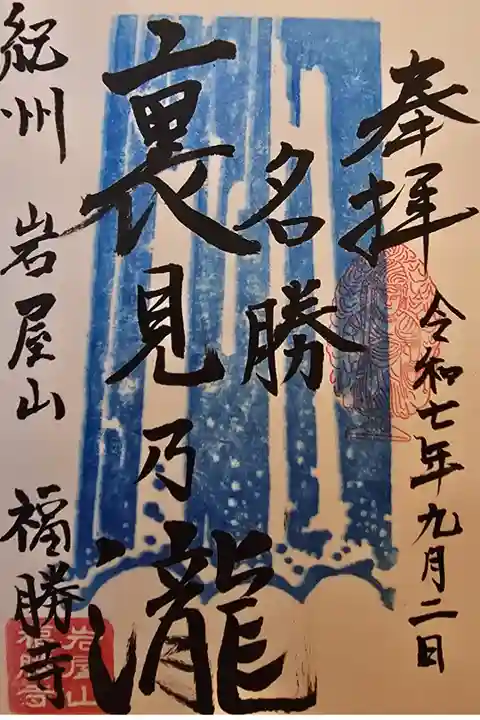 奉拝
令和七年九月二日
名勝
裏見乃瀧
紀州 岩屋山 福勝寺
岩屋山
福勝寺